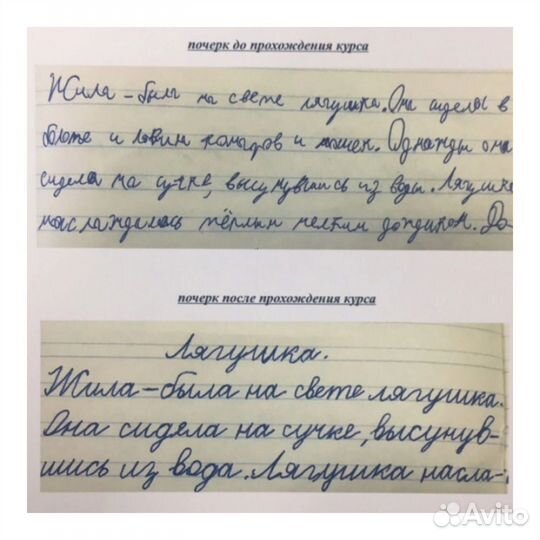 почерк до прохождения курса
Жила-была на свете лягушка. Она сидела в
болоте и ловил комаров и мошек. Однажды она
сидела на сучке, высунувшись из воды. Лягушка
наслаждалась тёплым мелким дождиком. До-
почерк после прохождения курса
Лягушка.
Жила-была на свете лягушка.
Она сидела на сучке, высунув-
шись из вода. Лягушка насла-
Avito